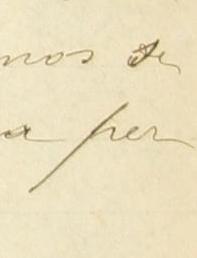 nos de
a per